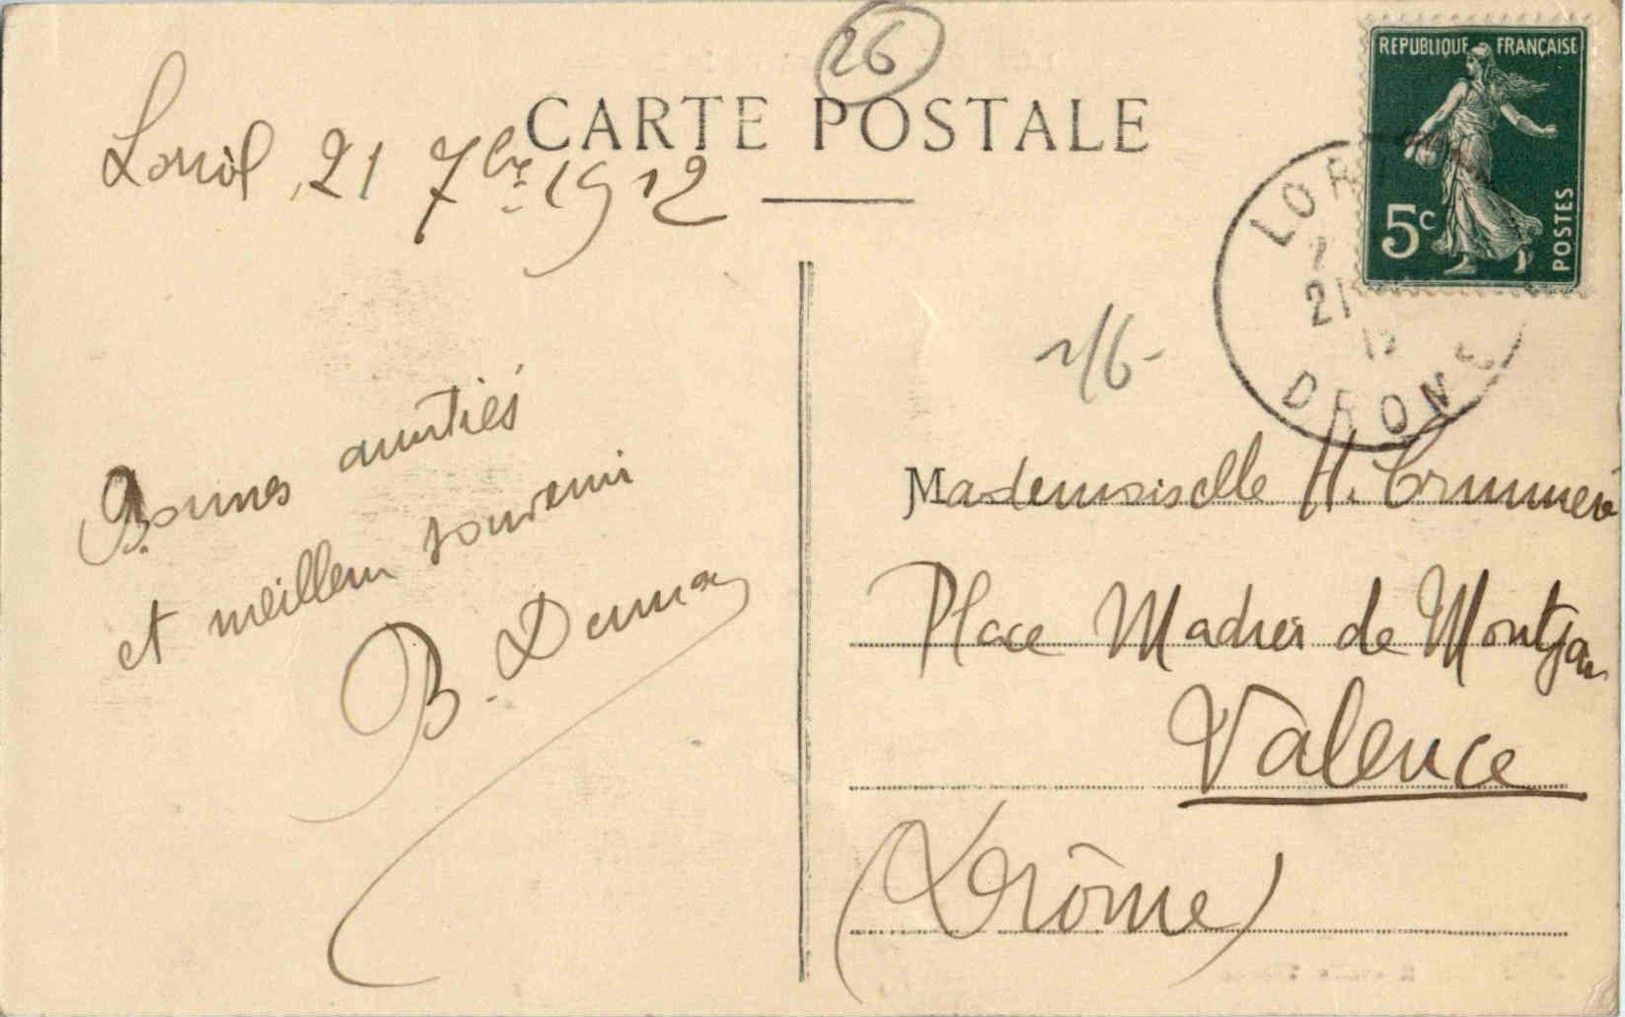 26
CARTE POSTALE
Loriol, 21 7bre 1912
REPUBLIQUE FRANÇAISE
5c
POSTES
LOR
21
12
DROME
2/6-
Bonnes amitiés
et meilleur souvenir
B.
Mademoiselle H.
Place Madier de Montjau
Valence
(Drôme)